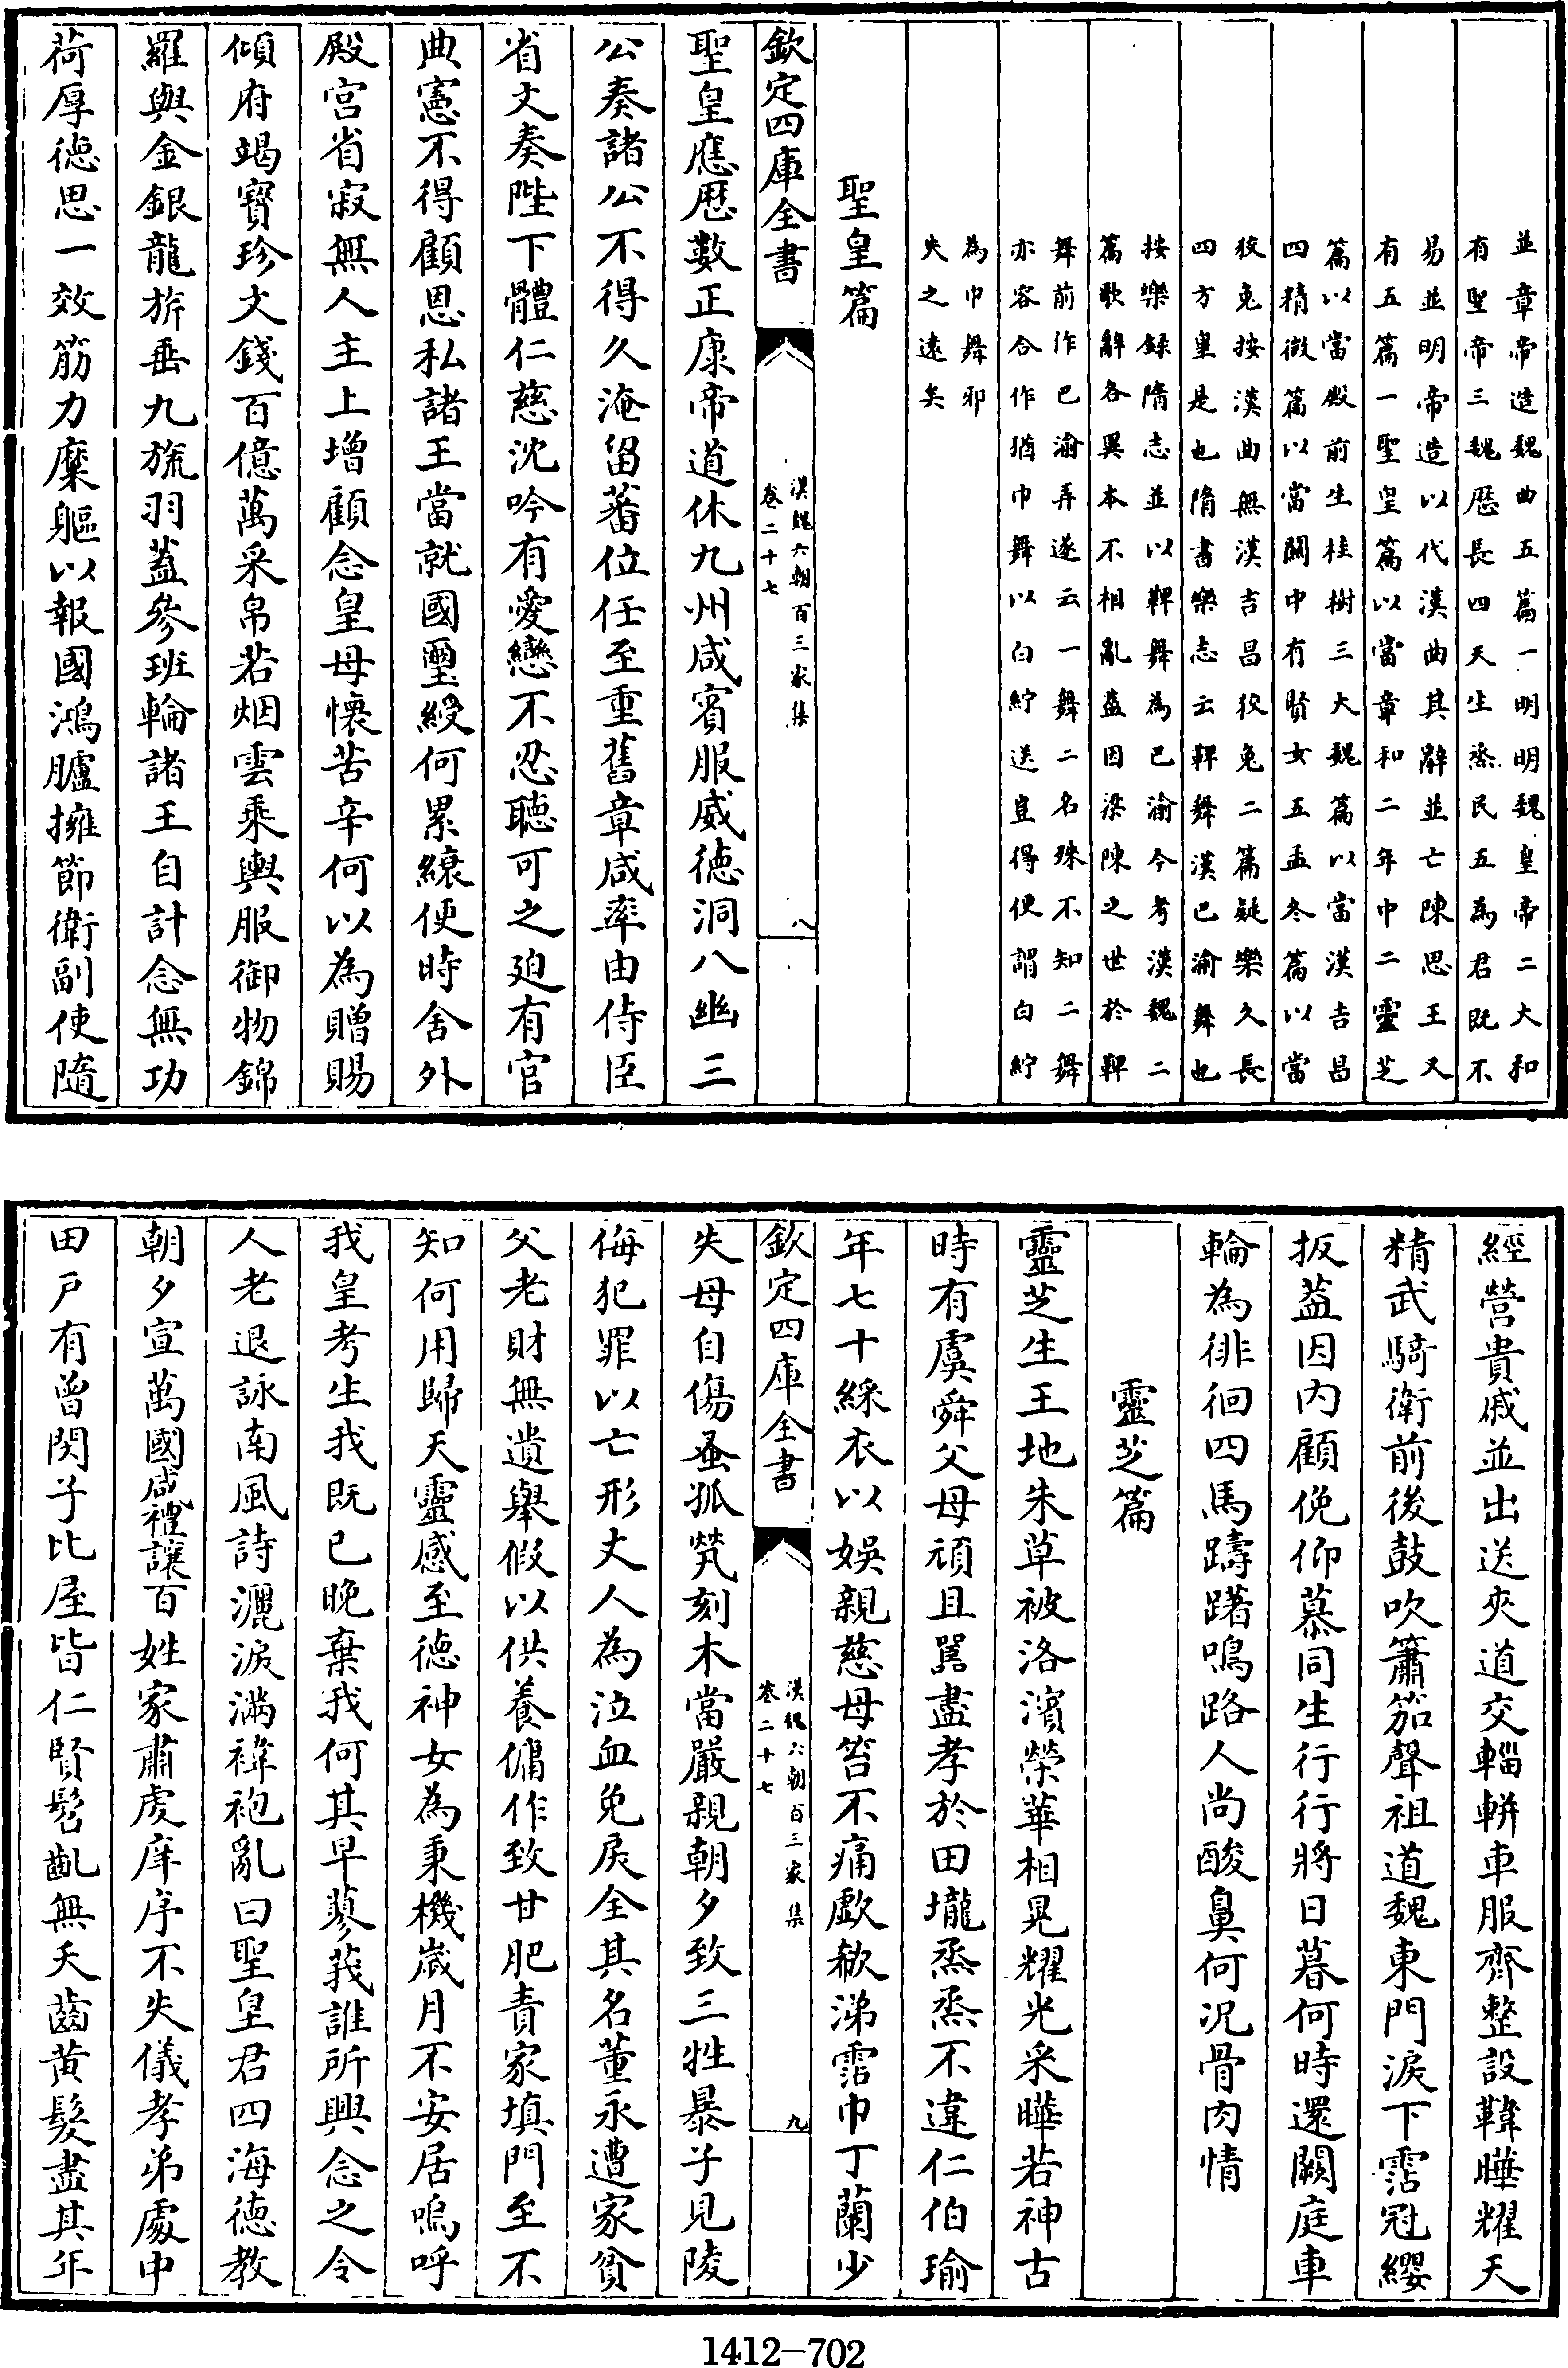 並章帝造魏曲五篇一明明魏皇帝二大和
有聖帝三魏歷長四天生烝民五為君既不
易並明帝造以代漢曲其辭並亡陳思王又
有五篇一聖皇篇以當章和二年中二靈芝
篇以當殿前生桂樹三大魏篇以當漢吉昌
四精微篇以當關中有賢女五孟冬篇以當
狡兔按漢曲無漢吉昌狡兔二篇疑樂久長
四方皇是也隋書樂志云鞞舞漢巴渝舞也
按樂錄隋志並以鞞舞為巴渝今考漢魏二
篇歌辭各異本不相亂葢因梁陳之世於鞞
舞前作巴渝弄遂云一舞二名殊不知二舞
亦容合作猶巾舞以白紵送豈得便謂白紵
為巾舞邪
失之遠矣
聖皇篇
欽定四庫全書
漢魏六朝百三家集
卷二十七
八
聖皇應歷數正康帝道休九州咸賓服威德洞八幽三
公奏諸公不得久淹留蕃位任至重舊章咸率由侍臣
省文奏陛下體仁慈沈吟有愛戀不忍聽可之迫有官
典憲不得顧恩私諸王當就國璽綬何累縗便時舍外
殿宮省寂無人主上增顧念皇母懷苦辛何以為贈賜
傾府竭寳珍文錢百億萬采帛若烟雲乘輿服御物錦
羅與金銀龍旂垂九旒羽蓋參班輪諸王自計念無功
荷厚德思一效筋力糜軀以報國鴻臚擁節衛副使隨
經營貴戚並出送夾道交輜軿車服齊整設韡曄耀天
精武騎衛前後鼓吹簫笳聲祖道魏東門淚下霑冠纓
扳葢因内顧俛仰慕同生行行將日暮何時還闕庭車
輪為徘徊四馬躊躇鳴路人尚酸鼻何況骨肉情
靈芝篇
靈芝生王地朱草被洛濱榮華相晃耀光采曄若神古
時有虞舜父母頑且嚚盡孝於田壠烝烝不違仁伯瑜
年七十綵衣以娛親慈母笞不痛歔欷涕霑巾丁蘭少
欽定四庫全書
漢魏六朝百三家集
卷二十七
九
失母自傷蚤孤煢刻木當嚴親朝夕致三牲暴子見陵
侮犯罪以亡形丈人為泣血免戾全其名董永遭家貧
父老財無遺舉假以供養傭作致甘肥責家填門至不
知何用歸天靈感至德神女為秉機歲月不安居嗚呼
我皇考生我既已晚棄我何其早蓼莪誰所興念之令
人老退詠南風詩灑淚滿褘袍亂曰聖皇君四海德教
朝夕宣萬國咸禮讓百姓家肅䖍庠序不失儀孝弟處中
田戶有曾閔子比屋皆仁賢髫齔無夭齒黃髮盡其年
1412-702